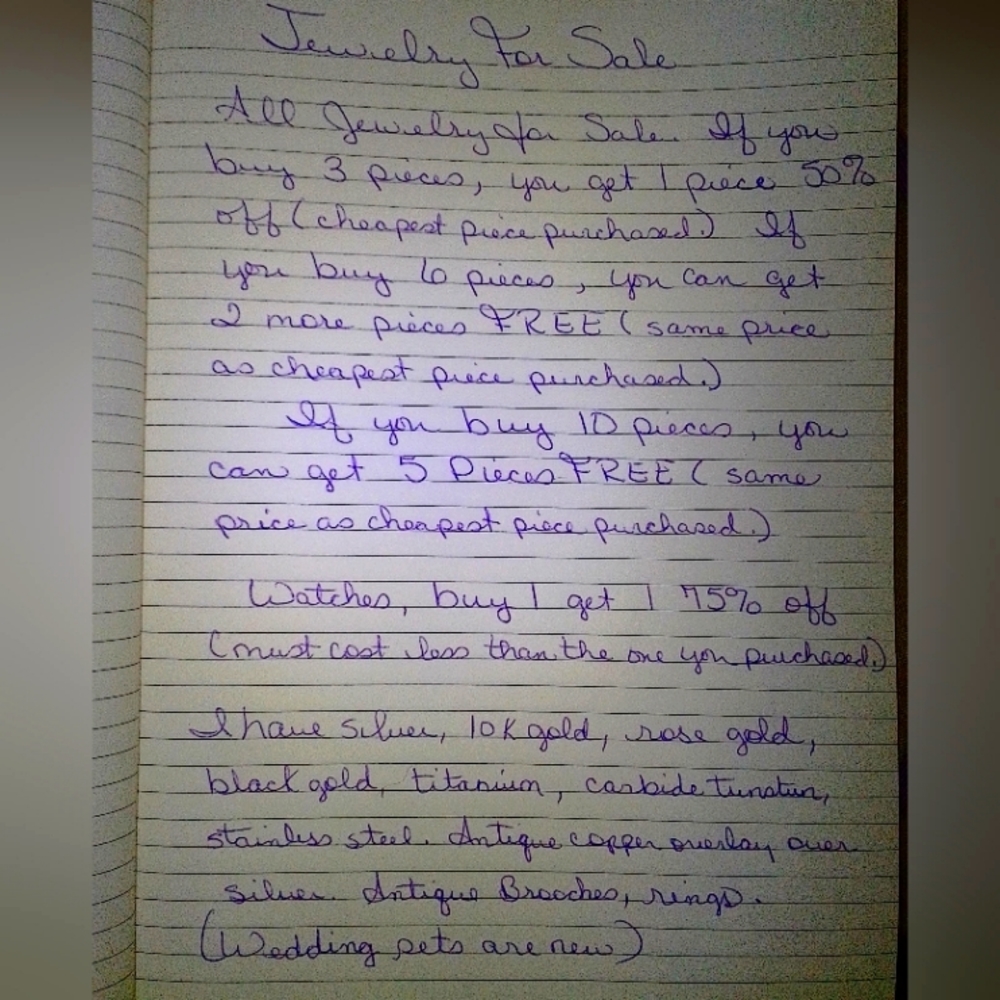 Jewelry For Sale
All Jewelry for Sale. If you
buy 3 pieces, you get 1 piece 50%
off (cheapest piece purchased.) If
you buy 6 pieces, you can get
2 more pieces FREE (same price
as cheapest piece purchased.)
If you buy 10 pieces, you
can get 5 Pieces FREE (same
price as cheapest piece purchased.)
Watches, buy 1 get 1 75% off
(must cost less than the one you purchased.)
I have silver, 10K gold, rose gold,
black gold, titanium, carbide
stainless steel. Antique copper overlay over
silver. Antique Brooches, rings.
(Wedding sets are new)